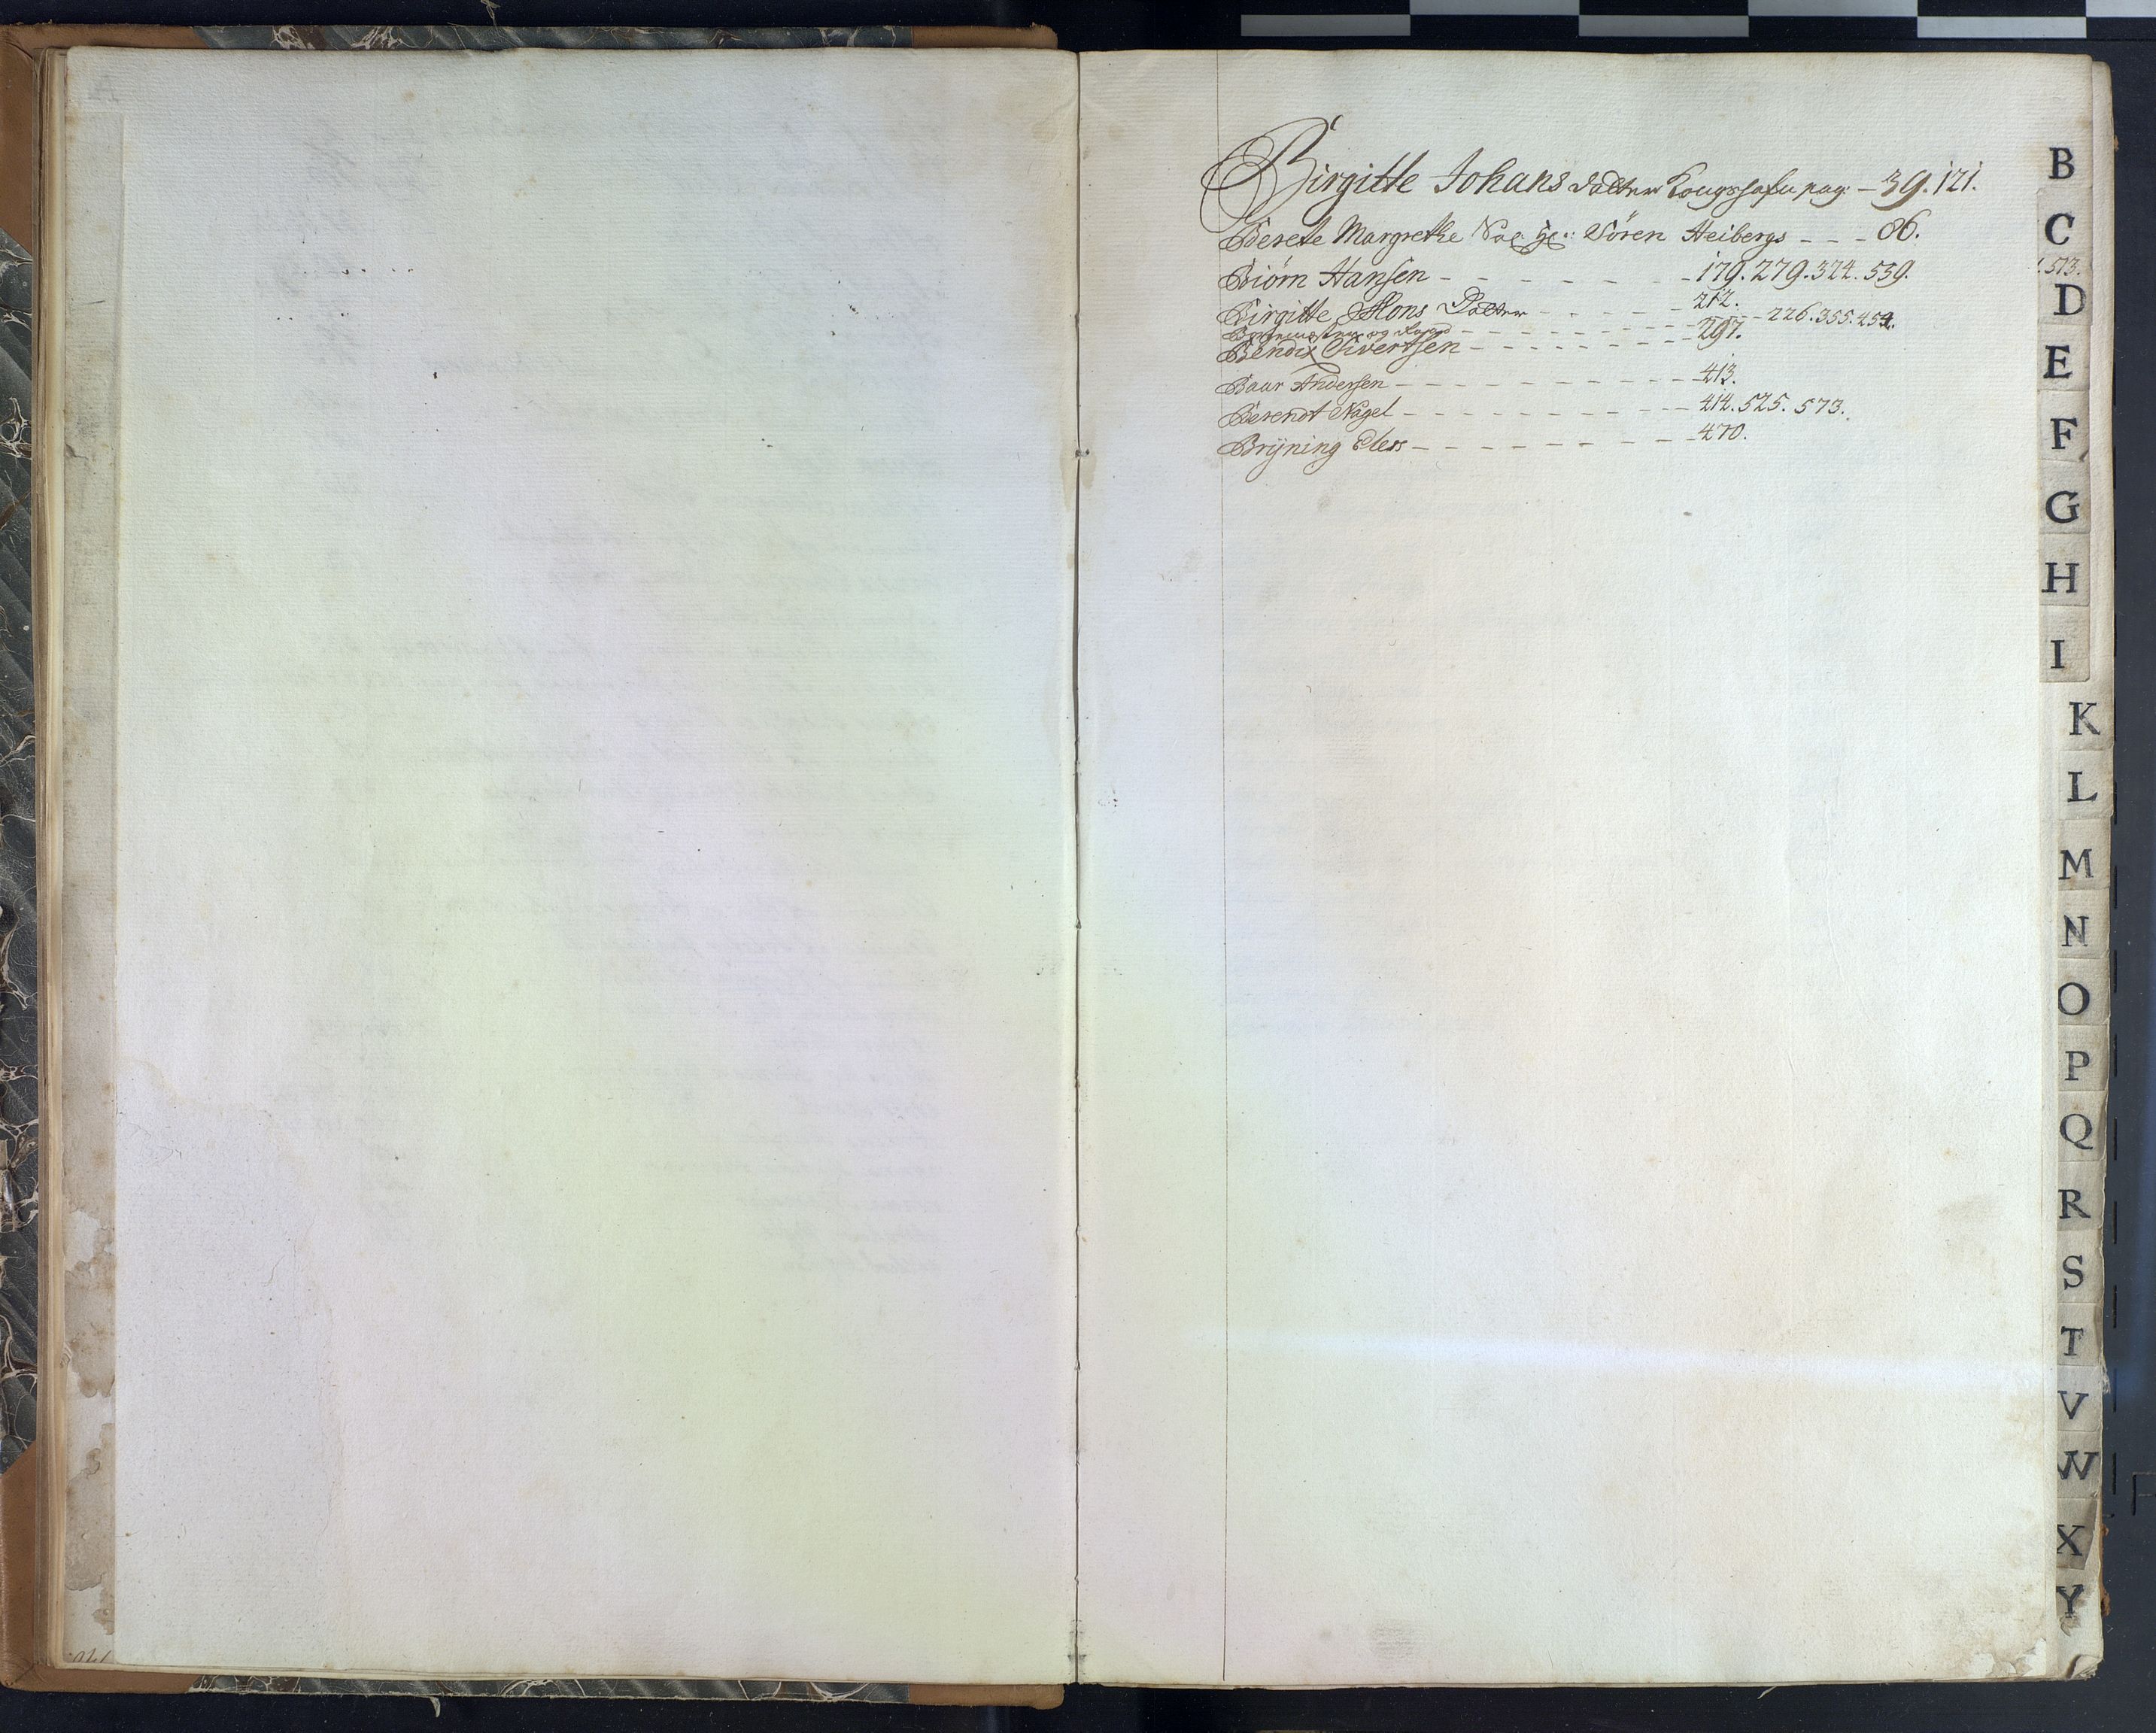 Birgitte Johans datter Kongshafn pag: - 39. 121.
Berete Margrethe Sal: Hr: Sören Heibergs - - - 86.
Biörn Hansen - - - - - - 179. 279. 324. 539.
Birgitte Mons Datter - - - - - 212.
Borgemester og Raad - - - - - - - - - 226. 355. 454.
Bendix Sivertsen - - - - - - - - 297.
Baur Andersen - - - - - - - - - - 413.
Berendt Nagel - - - - - - - - - - 414. 525. 573.
Brÿning Eless - - - - - - - - - 470.
B
C
573.
D
E
F
G
H
I
K
L
M
N
O
P
Q
R
S
T
V
W
X
Y